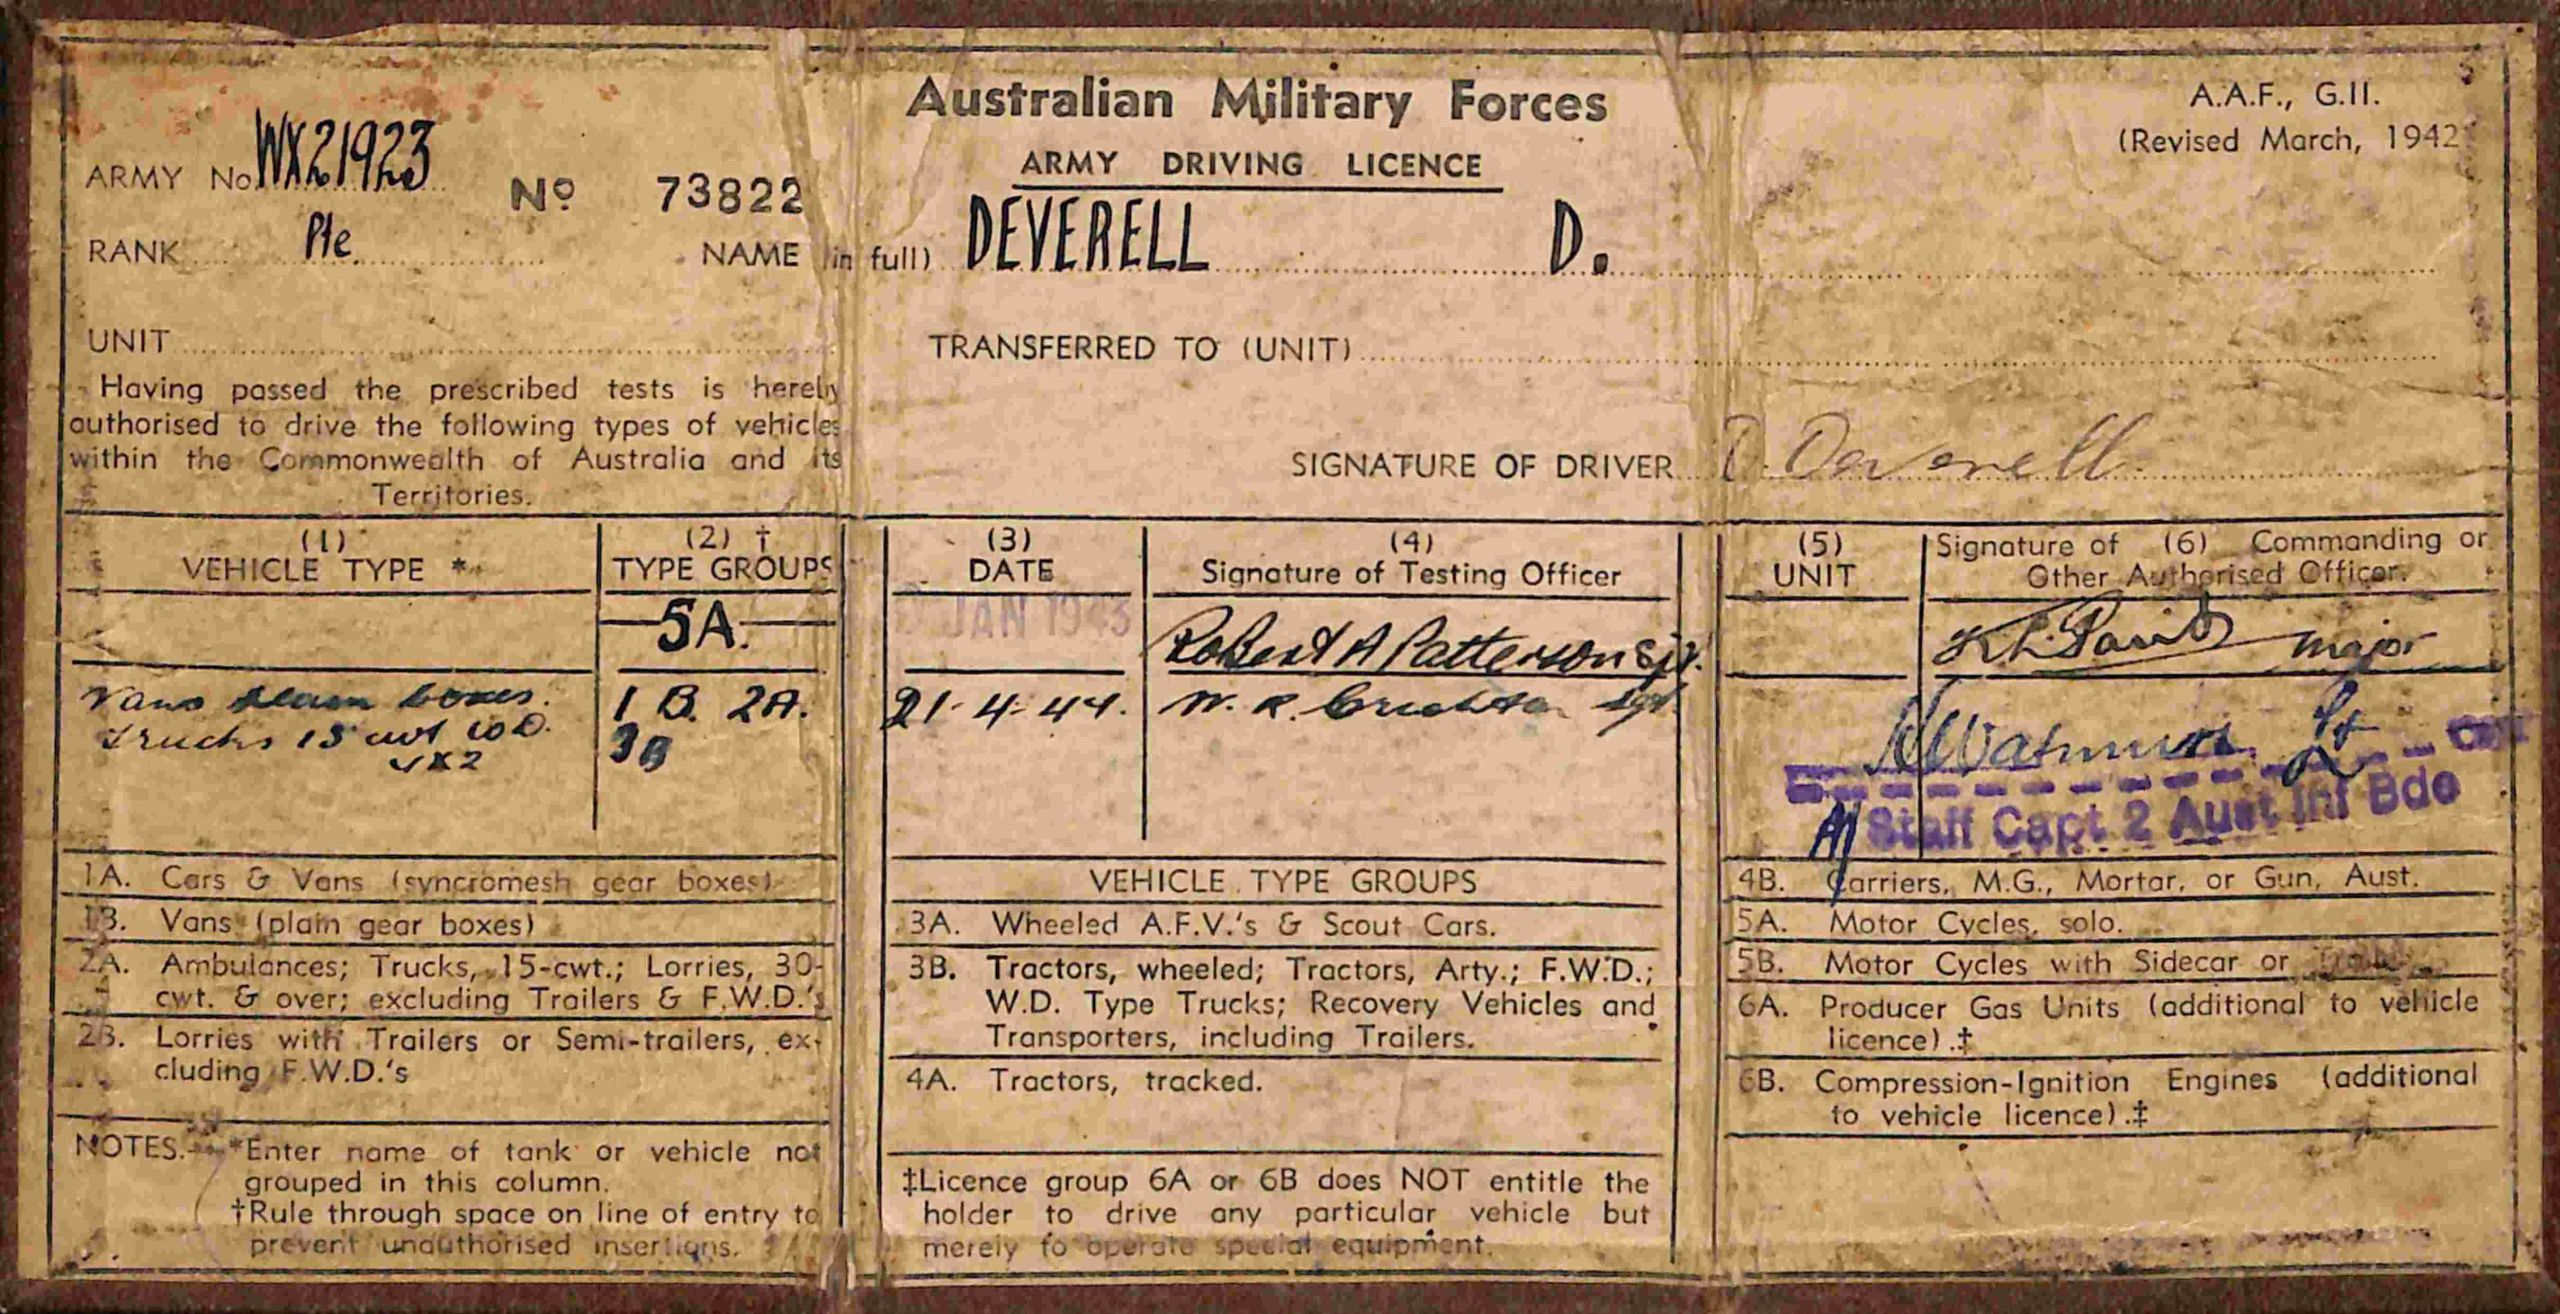 Australian Military Forces
A.A.F., G.II.
(Revised March, 1942
ARMY No. WX21923
No 73822
ARMY DRIVING LICENCE
RANK Pte
NAME (in full) DEVERELL D.
UNIT
TRANSFERRED TO (UNIT)
Having passed the prescribed tests is hereby
authorised to drive the following types of vehicles
within the Commonwealth of Australia and its
Territories.
SIGNATURE OF DRIVER D. Deverell
(1)
VEHICLE TYPE *
(2) †
TYPE GROUPS
(3)
DATE
(4)
Signature of Testing Officer
(5)
UNIT
Signature of (6) Commanding or
Other Authorised Officer.
5A.
JAN 1943
Robert A Patterson Sjt.
Major
Vans plain boxes.
Trucks 15 cwt
4x2
1 B. 2A.
3B
21-4-44.
W. R. Crichton Sgt.
Lt
Capt
Staff Capt 2 Aust Inf Bde
1A. Cars & Vans (syncromesh gear boxes)
1B. Vans (plain gear boxes)
2A. Ambulances; Trucks, 15-cwt.; Lorries, 30-
cwt. & over; excluding Trailers & F.W.D.'s
2B. Lorries with Trailers or Semi-trailers, ex-
cluding F.W.D.'s
VEHICLE TYPE GROUPS
3A. Wheeled A.F.V.'s & Scout Cars.
3B. Tractors, wheeled; Tractors, Arty.; F.W.D.;
W.D. Type Trucks; Recovery Vehicles and
Transporters, including Trailers.
4A. Tractors, tracked.
4B. Carriers, M.G., Mortar, or Gun, Aust.
5A. Motor Cycles, solo.
5B. Motor Cycles with Sidecar or
6A. Producer Gas Units (additional to vehicle
licence).‡
6B. Compression-Ignition Engines (additional
to vehicle licence).‡
NOTES.—*Enter name of tank or vehicle not
grouped in this column.
†Rule through space on line of entry to
prevent unauthorised insertions.
‡Licence group 6A or 6B does NOT entitle the
holder to drive any particular vehicle but
merely to operate special equipment.